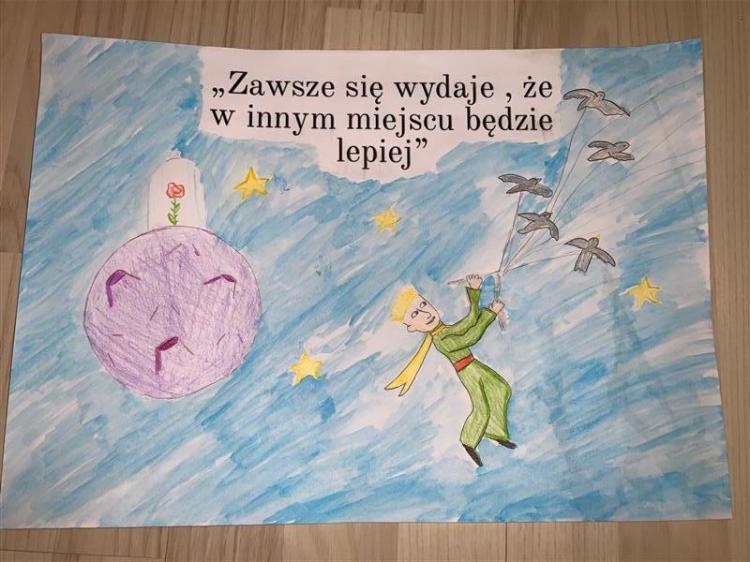 „Zawsze się wydaje , że
w innym miejscu będzie
lepiej”